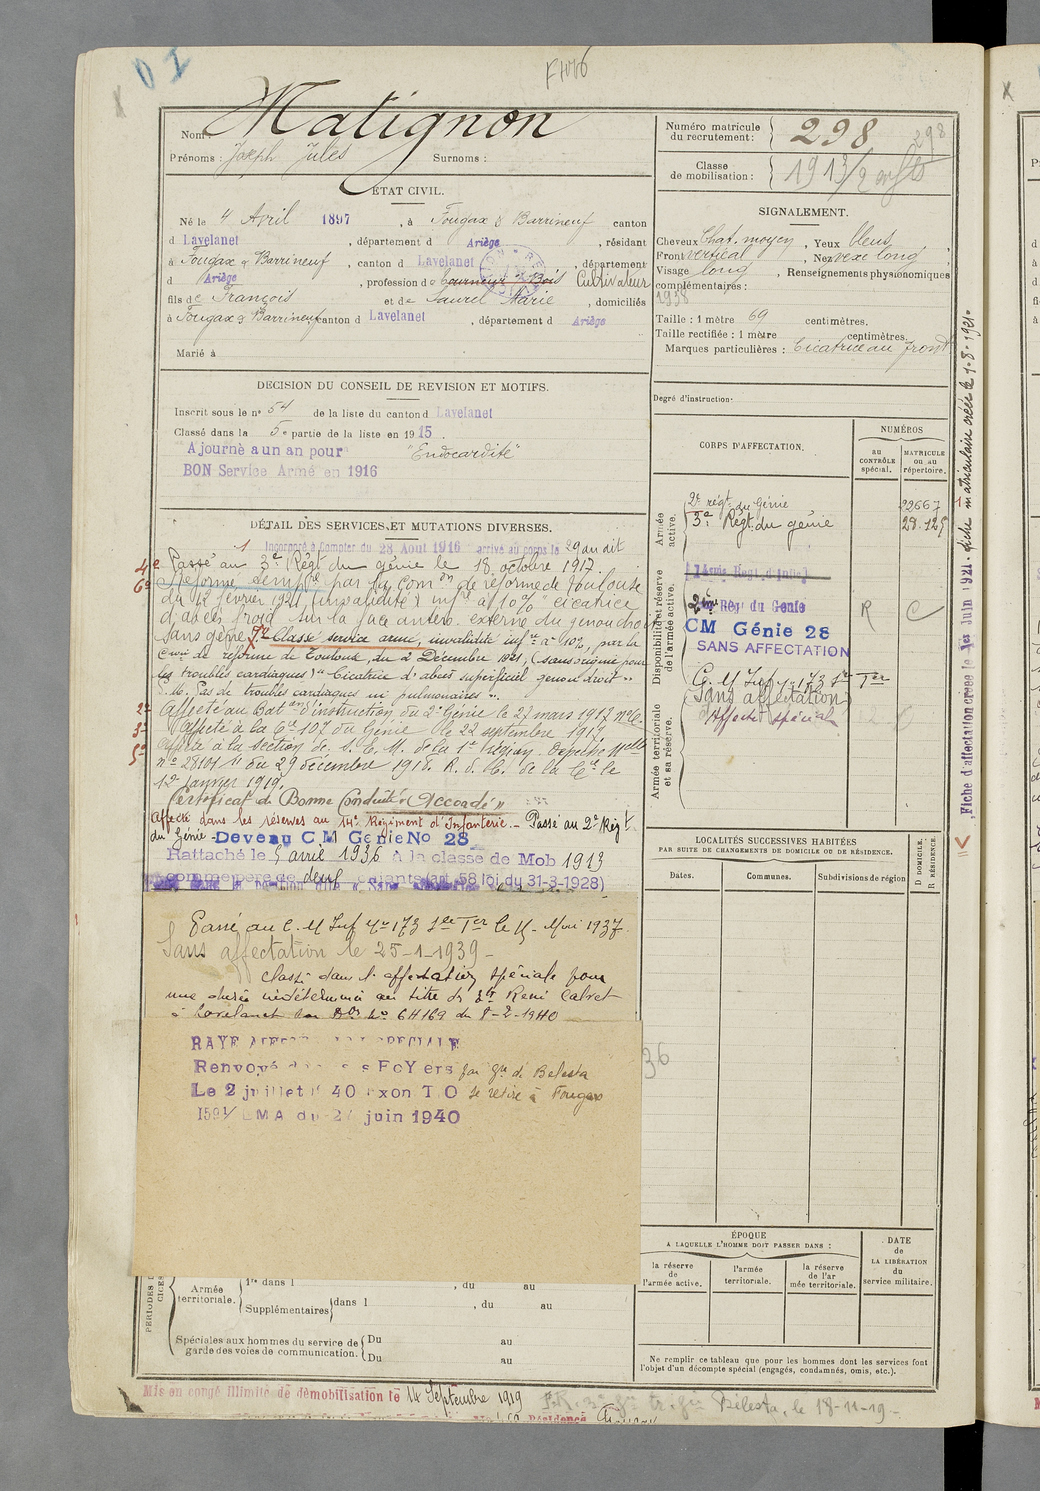 01
Nom: Matignon
Prénoms: Joseph Jules Surnoms:
ÉTAT CIVIL.
Né le 4 Avril 1897, à Fougax & Barrineuf canton
d Lavelanet, département d Ariège, résidant
à Fougax & Barrineuf, canton d Lavelanet, département
d Ariège, profession de tourneur s/ Bois Cultivateur
fils de François et de Laurel Marie, domiciliés
à Fougax & Barrineuf canton d Lavelanet, département d Ariège
Marié à
DECISION DU CONSEIL DE REVISION ET MOTIFS.
Inscrit sous le n° 54 de la liste du canton d Lavelanet
Classé dans la 5e partie de la liste en 1915.
Ajourné a un an pour "Endocardite"
BON Service Armé en 1916
DÉTAIL DES SERVICES ET MUTATIONS DIVERSES.
1 Incorporé à Compter du 28 Août 1916 arrivé au corps le 29 au dit
4e Passé au 3e Régt du génie le 18 octobre 1917.
6e Réformé tempre par la Comon de réforme de Toulouse
du 12 février 1921, (invalidité) infre à 10% cicatrice
d'abcès froid sur la face antéro externe du genou droit
sans gêne 7e Classé service armé, invalidité infre à 10%, par la
Con de réforme de Toulouse, du 2 Décembre 1921, (sans origine pour
les troubles cardiaques) "Cicatrice d'abcès superficiel genou droit".
P.M. Pas de troubles cardiaques ni pulmonaires".
2e Affecté au Baton d'instruction du 2e Génie le 27 mars 1917
3e Affecté à la Cie 107 du Génie le 22 septembre 1917.
5e Affecté à la section de S.C.M. de la 1e Région. Dépêche Mlle
n° 28101 du 29 décembre 1918. R. d. C. de la Cie le
12 Janvier 1919.
Certificat de Bonne Conduite "Accordé"
Affecté dans les réserves au 14e Régiment d'Infanterie. - Passé au 2e Régt
du Génie - Devenu C M Génie No 28
Rattaché le 5 avril 1936 à la classe de Mob 1913
comme père de deux enfants (art. 58 loi du 31-3-1928)
Passé au C. M Inf n° 173 le 15 Mai 1937
Sans affectation le 25-1-1939 -
classé dans l'affectation spéciale pour
une durée indéterminée au titre de René Calvet
à Lavelanet 6H169 du 8-2-1940
RAYE AFFECTATION SPECIALE
Renvoyé dans ses FoYers par gie de Belesta
Le 2 juillet 40 se retire à Fougax
1591/ EMA du 27 juin 1940
PERIODES D
Armée territoriale. 1re dans l , du au
Supplémentaires dans l , du au
Spéciales aux hommes du service de garde des voies de communication. Du au
Du au
Mis en congé illimité de démobilisation le 14 Septembre 1919
Belesta, le 18-11-19 -
Résidence
Numéro matricule du recrutement: 298
298
Classe de mobilisation: 1913/2 enfts
SIGNALEMENT.
Cheveux Chat. moyen, Yeux bleus,
Front vertical, Nez vexe long,
Visage long, Renseignements physionomiques
complémentaires:
1938
Taille: 1 mètre 69 centimètres.
Taille rectifiée: 1 mètre centimètres.
Marques particulières: Cicatrice au front
Degré d'instruction:
CORPS D'AFFECTATION. NUMÉROS
au CONTRÔLE spécial. MATRICULE ou au répertoire.
Armée active.
2e régt. du Génie 22667
3e Régt. du génie 28.125
Disponibilité et réserve de l'armée active.
14ème Regt. d'Infie
2ème Rég du Genie R C
CM Génie 28
SANS AFFECTATION
Armée territoriale et sa réserve.
C. M Inf n° 173 Ter
Sans affectation
Affecté spécial
LOCALITÉS SUCCESSIVES HABITÉES
PAR SUITE DE CHANGEMENTS DE DOMICILE OU DE RÉSIDENCE.
Dates. Communes. Subdivisions de région. D DOMICILE. R RÉSIDENCE.
36
ÉPOQUE
A LAQUELLE L'HOMME DOIT PASSER DANS:
la réserve de l'armée active. l'armée territoriale. la réserve de l'armée territoriale.
DATE de LA LIBÉRATION du service militaire.
Ne remplir ce tableau que pour les hommes dont les services font
l'objet d'un décompte spécial (engagés, condamnés, omis, etc.).
Fiche d'affectation créée le 1er Juin 1921 - fiche matriculaire créée le 1-8-1921.